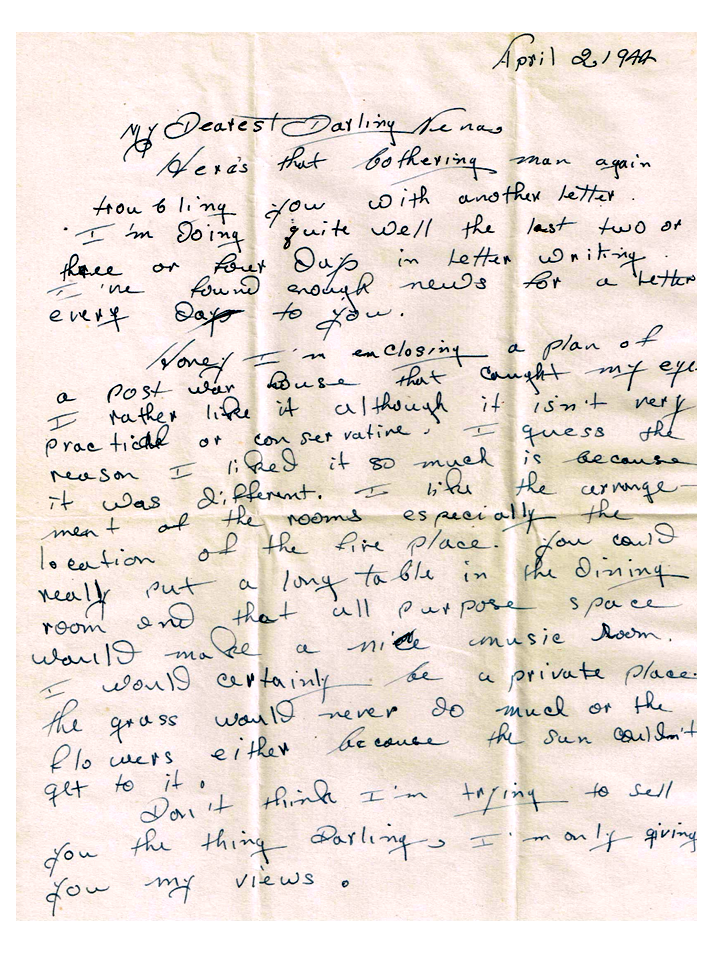 April 2, 1944
My Dearest Darling Nena,
Here's that bothering man again
troubling you with another letter.
I'm doing quite well the last two or
three or four days in letter writing.
I've found enough news for a letter
every day to you.
Honey I'm enclosing a plan of
a post war house that caught my eye.
I rather like it although it isn't very
practical or conservative. I guess the
reason I liked it so much is because
it was different. I like the arrange-
ment of the rooms especially the
location of the fire place. You could
really put a long table in the dining
room and that all purpose space
would make a nice music room.
I would certainly be a private place.
the grass would never do much or the
flowers either because the sun couldn't
get to it.
Don't think I'm trying to sell
you the thing Darling, I'm only giving
you my views.